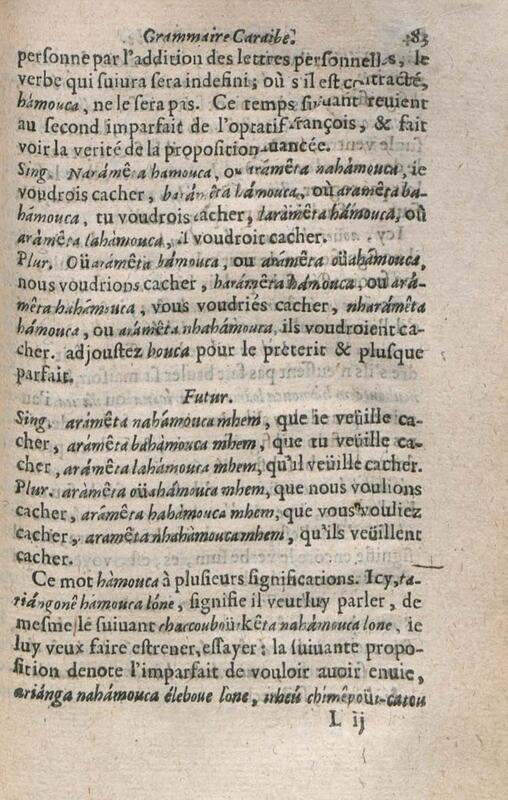 Grammaire Caraibe. 83
personne par l'addition des lettres personnelles, le
verbe qui suiura sera indefini; où s'il est contracté,
hámouca, ne le sera pas. Ce temps suiuant reuient
au second imparfait de l'optatif françois, & fait
voir la verité de la proposition auancée.
Sing. Narámêta hamouca, ou arámêta nahámouca, ie
voudrois cacher, barámêta hámouca, où aramêta ba-
hámouca, tu voudrois cacher, larámêta hámouca, où
arámêta lahámouca, il voudroit cacher.
Plur. Oüarámêta hámouca, ou arámêta oüahámouca,
nous voudrions cacher, harámêta hámouca, ou ará-
mêta hahámouca, vous voudriés cacher, nharámêta
hámouca, ou arámêta nhahámouca, ils voudroient ca-
cher. adjoustez bouca pour le preterit & plusque
parfait.
Futur.
Sing. arámêta nahámouca mhem, que ie veüille ca-
cher, arámêta bahámouca mhem, que tu veüille ca-
cher, arámêta lahámouca mhem, qu'il veüille cacher.
Plur. arámêta oüahámouca mhem, que nous voulions
cacher, arámêta hahámouca mhem, que vous vouliez
cacher, aramêta nhahámouca mhem, qu'ils veüillent
cacher.
Ce mot hàmouca à plusieurs significations. Icy, ta-
riángonê hàmouca lóne, signifie il veut luy parler, de
mesme le suiuant chaccouboüi kêta nahámouca lone, ie
luy veux faire estrener, essayer: la suiuante propo-
sition denote l'imparfait de vouloir auoir enuie,
ariánga nahámouca éleboue lone, nheú chimêpoüi-catou
L ij